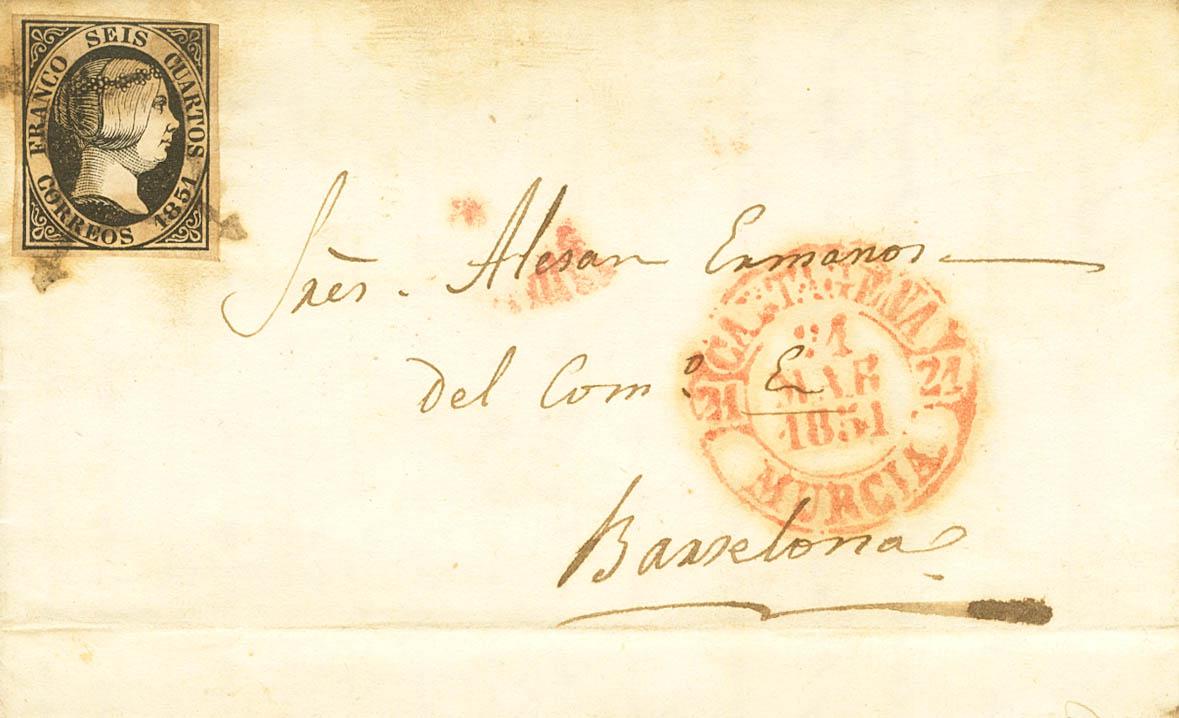 FRANCO SEIS CUARTOS
CORREOS 1851
Sres. Alesan Ermanos
del Comº E
Barselona
CARTAGENA
21 21
21
MAR
1851
MURCIA